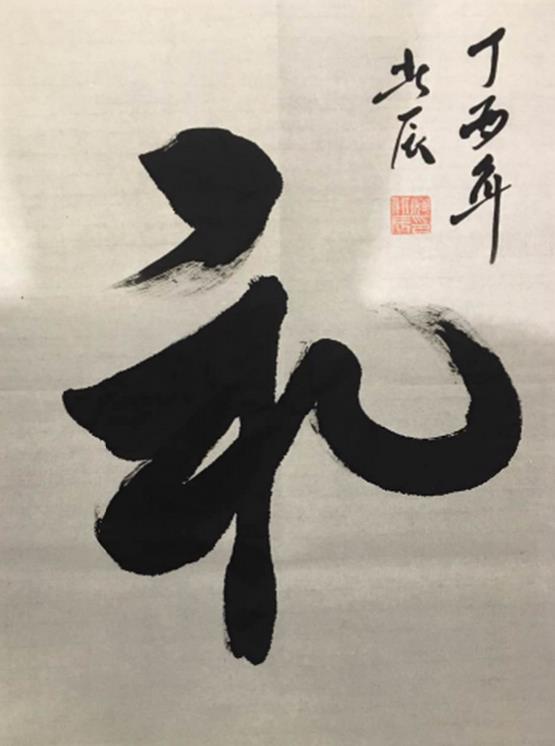 礼
丁酉年
北辰